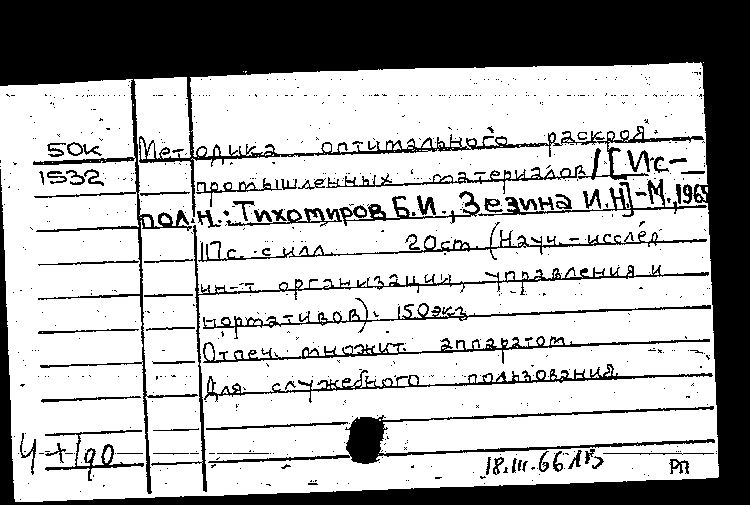 50к Методика оптимального раскроя
1532 промышленных материалов / [Ис-
полн.: Тихомиров Б.И., Зезина И.Н] - М., 1965
117с. с илл. 20ст (Науч.-исслед
ин-т организации, управления и
нормативов). 150экз
Отпеч. множит. аппаратом.
Для служебного пользования
Ч+190
18.III.66 РП